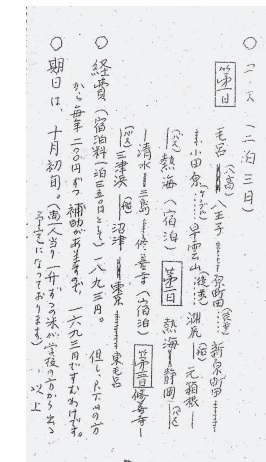 ○ 二・六（二泊三日）
第一日 毛呂(八高)八王子 原町田 新原町田
小田原(ケーブル)早雲山(徒歩)湖尻(船)元箱根
(バス)熱海(宿泊) 第二日 熱海 静岡(バス)
清水 三島 修善寺(宿泊) 第三日 修善寺
(バス)三津浜(船)沼津 東京 東毛呂
○ 経費(宿泊料一泊三五〇円として)一八九三円。但し、P.T.Aの方
から毎年二〇〇円ずつ補助がありますので、一六九三円ですむわけです。
○ 期日は、十月初旬。(一人当り一升ずつの米が学校の方から出る
予定になっております) 以上